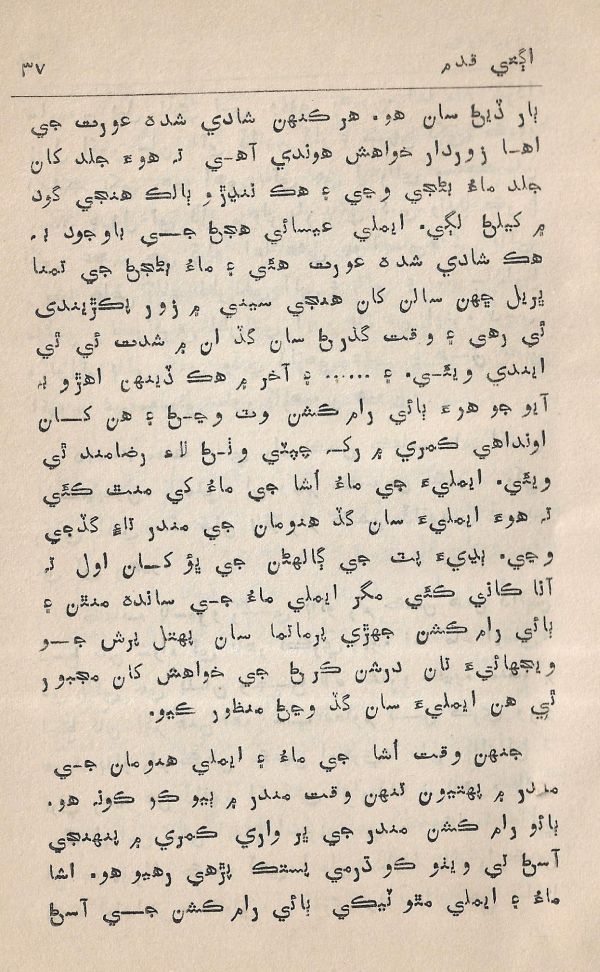 اڳتي قدم
٣٧
ٻار ڏيڻ سان هو. هر ڪنهن شادي شده عورت جي
اها زوردار خواهش هوندي آهي تہ هوءَ جلد کان
جلد ماءُ بڻجي وڃي ۽ هڪ ننڍڙو ٻالڪ هنجي گود
۾ کيلڻ لڳي. ايملي عيسائي هجڻ جي باوجود بہ
هڪ شادي شده عورت هئي ۽ ماءُ بڻجڻ جي تمنا
ڀريل ڇهن سالن کان هنجي سيني ۾ زور پڪڙيندي
ٿي رهي ۽ وقت گذرڻ سان گڏ ان ۾ شدت ئي ٿي
ايندي ويئي. ۽ ...... ۽ آخر ۾ هڪ ڏينهن اهڙو بہ
آيو جو هوءَ ٻائي رام ڪشن وٽ وڃڻ ۽ هن کان
اونداهي ڪمري ۾ رک چپٽي وٺڻ لاءِ رضامند ٿي
ويئي. ايمليءَ جي ماءُ اُشا جي ماءُ کي منٿ ڪئي
تہ هوءَ ايمليءَ سان گڏ هنومان جي مندر تائ گڏجي
وڃي. ٻڍيءَ پٽ جي ڳالهڻن جي ڀؤ کان اول تہ
آنا ڪاني ڪئي مگر ايملي ماءُ جي سانده منٿن ۽
ٻائي رام ڪشن جهڙي پرماتما سان پهتل پرش جو
ويجهائيءَ تان درشن ڪرڻ جي خواهش کان مجبور
ٿي هن ايمليءَ سان گڏ وڃڻ منظور ڪيو.
جنهن وقت اُشا جي ماءُ ۽ ايملي هنومان جي
مندر ۾ پهتيون تنهن وقت مندر ۾ ٻيو ڪر ڪونہ هو.
ٻائو رام ڪشن مندر جي ڀر واري ڪمري ۾ پنهنجي
آسڻ تي ويٺو ڪو ڌرمي پستڪ پڙهي رهيو هو. اشا
ماءُ ۽ ايملي مٿو ٽيڪي ٻائي رام ڪشن جي آسڻ